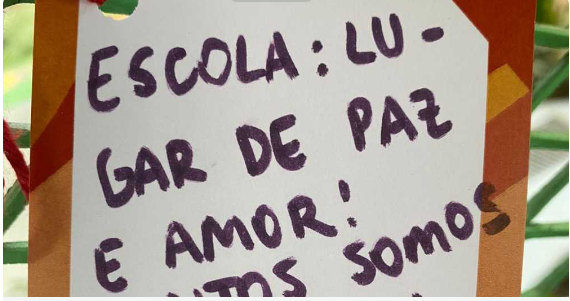 ESCOLA: LU-
GAR DE PAZ
E AMOR!
SOMOS